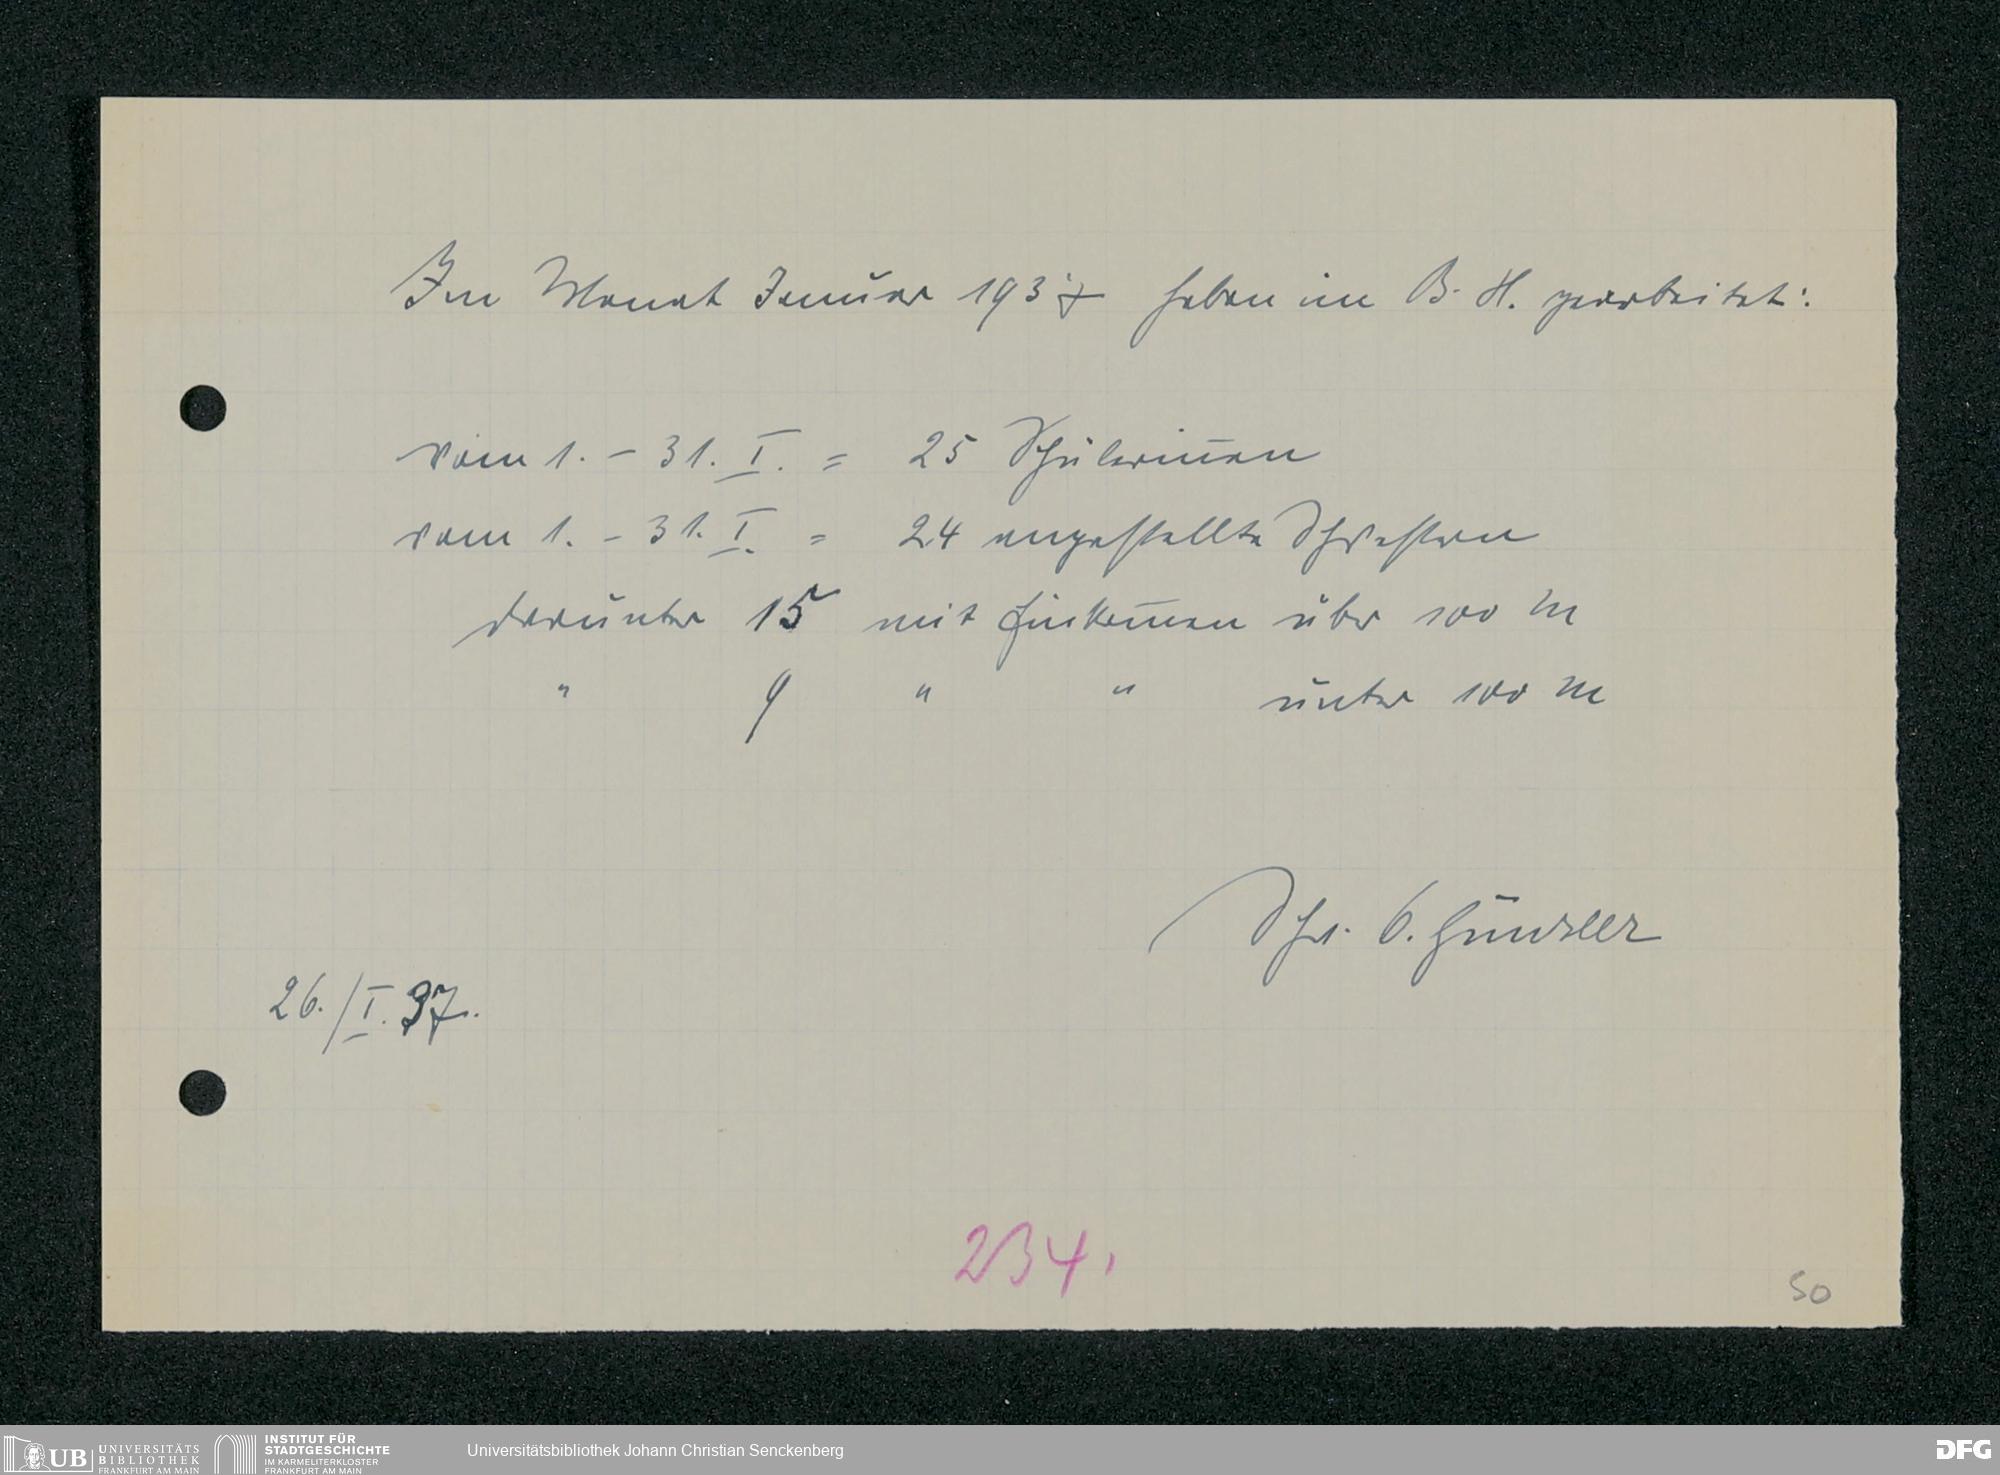 Im Monat Januar 1937 haben im B. H. gearbeitet:
vom 1. – 31. I. = 25 Schülerinnen
vom 1. – 31. I. = 24 angestellte Schwestern
darunter 15 mit Einkommen über 100 M
" 9 " " unter 100 M
Schw.
26./I. 37.
234.
50
UB UNIVERSITÄTS BIBLIOTHEK FRANKFURT AM MAIN
INSTITUT FÜR STADTGESCHICHTE IM KARMELITERKLOSTER FRANKFURT AM MAIN
Universitätsbibliothek Johann Christian Senckenberg
DFG